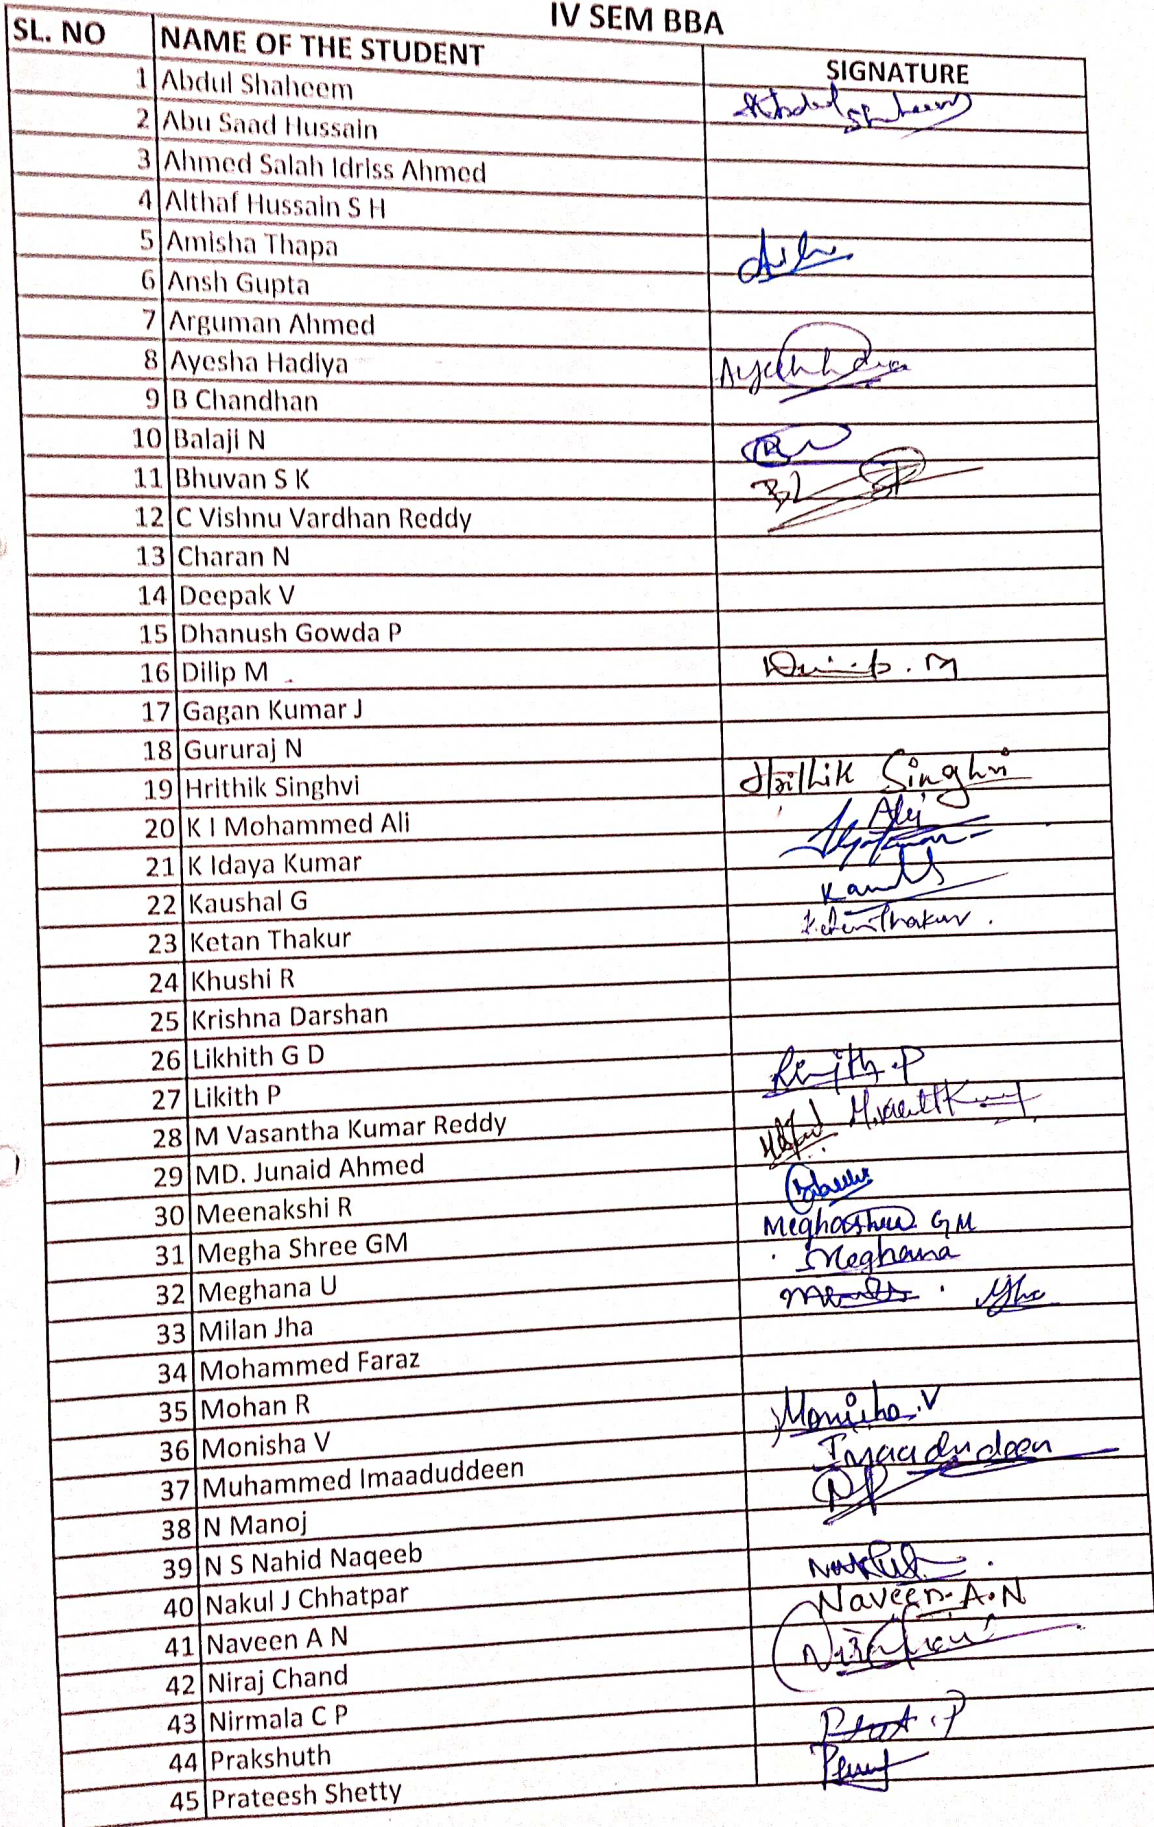 IV SEM BBA
SL. NO NAME OF THE STUDENT SIGNATURE
1 Abdul Shaheem Abdul Shaheem
2 Abu Saad Hussain
3 Ahmed Salah Idriss Ahmed
4 Althaf Hussain S H
5 Amisha Thapa
6 Ansh Gupta
7 Arguman Ahmed
8 Ayesha Hadiya
9 B Chandhan
10 Balaji N
11 Bhuvan S K
12 C Vishnu Vardhan Reddy
13 Charan N
14 Deepak V
15 Dhanush Gowda P
16 Dilip M
17 Gagan Kumar J
18 Gururaj N
19 Hrithik Singhvi Hrithik Singhvi
20 K I Mohammed Ali Ali
21 K Idaya Kumar
22 Kaushal G
23 Ketan Thakur Ketan Thakur
24 Khushi R
25 Krishna Darshan
26 Likhith G D
27 Likith P
28 M Vasantha Kumar Reddy
29 MD. Junaid Ahmed
30 Meenakshi R
31 Megha Shree GM Meghashree GM
32 Meghana U Meghana
33 Milan Jha
34 Mohammed Faraz
35 Mohan R
36 Monisha V Monisha.V
37 Muhammed Imaaduddeen Imaadudeen
38 N Manoj
39 N S Nahid Naqeeb
40 Nakul J Chhatpar
41 Naveen A N Naveen.A.N
42 Niraj Chand
43 Nirmala C P
44 Prakshuth
45 Prateesh Shetty